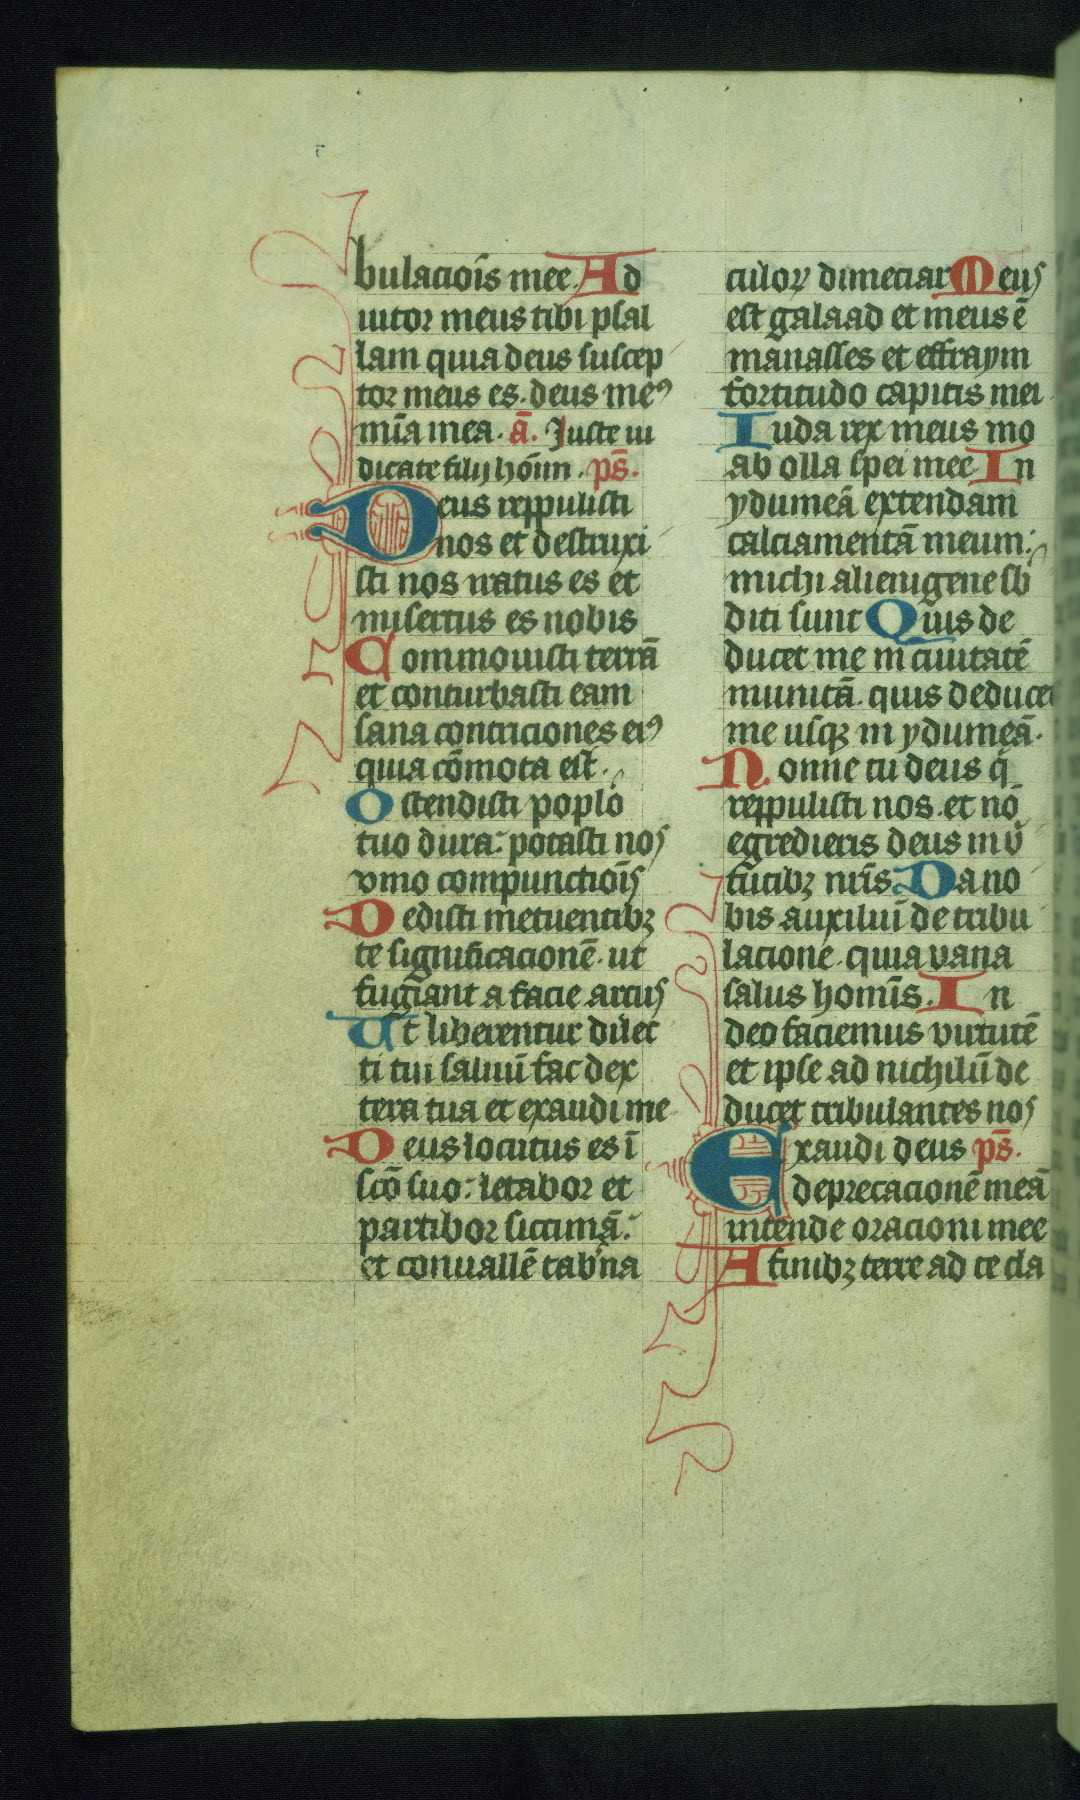 bulacioīs mee. Ad
iutor meus tibi psal
lam quia deus suscep
tor meus es. deus meꝯ
mīa mea. ā. Iuste iu
dicate filij hōīm. ps̄.
Deus reppulisti
nos et destruxi
sti nos iratus es et
misertus es nobis
Commouisti terrā
et conturbasti eam
sana contriciones eiꝯ
quia cōmota est.
Ostendisti poplo
tuo dura: potasti nos
vino compunctiōīs
Dedisti metuentibꝫ
te significacionē. ut
fugiant a facie arcus
Ut liberentur dilec
ti tui saluū fac dex
tera tua et exaudi me
Deus locutus es ī
scō suo: letabor et
partibor siccimā:
et conuallē tabˀna
culoꝝ dimeciar Meus
est galaad et meus ē
manasses et effraym
fortitudo capitis mei
Iuda rex meus mo
ab olla spei mee In
ydumeā extendam
calciamentā meum:
michi alienigene sb
diti sunt Quis de
ducet me in ciuitatē
munitā. quis deducet
me usqꝫ in ydumeā.
Nonne tu deus q
reppulisti nos. et nō
egredieris deus in v
tutibꝫ nr̄is. Da no
bis auxiliū de tribu
lacione. quia vana
salus homīs. In
deo faciemus virtutē
et ipse ad nichilū de
ducet tribulantes nos
Exaudi deus ps̄.
deprecacionē meā
intende oracioni mee
A finibꝫ terre ad te cla